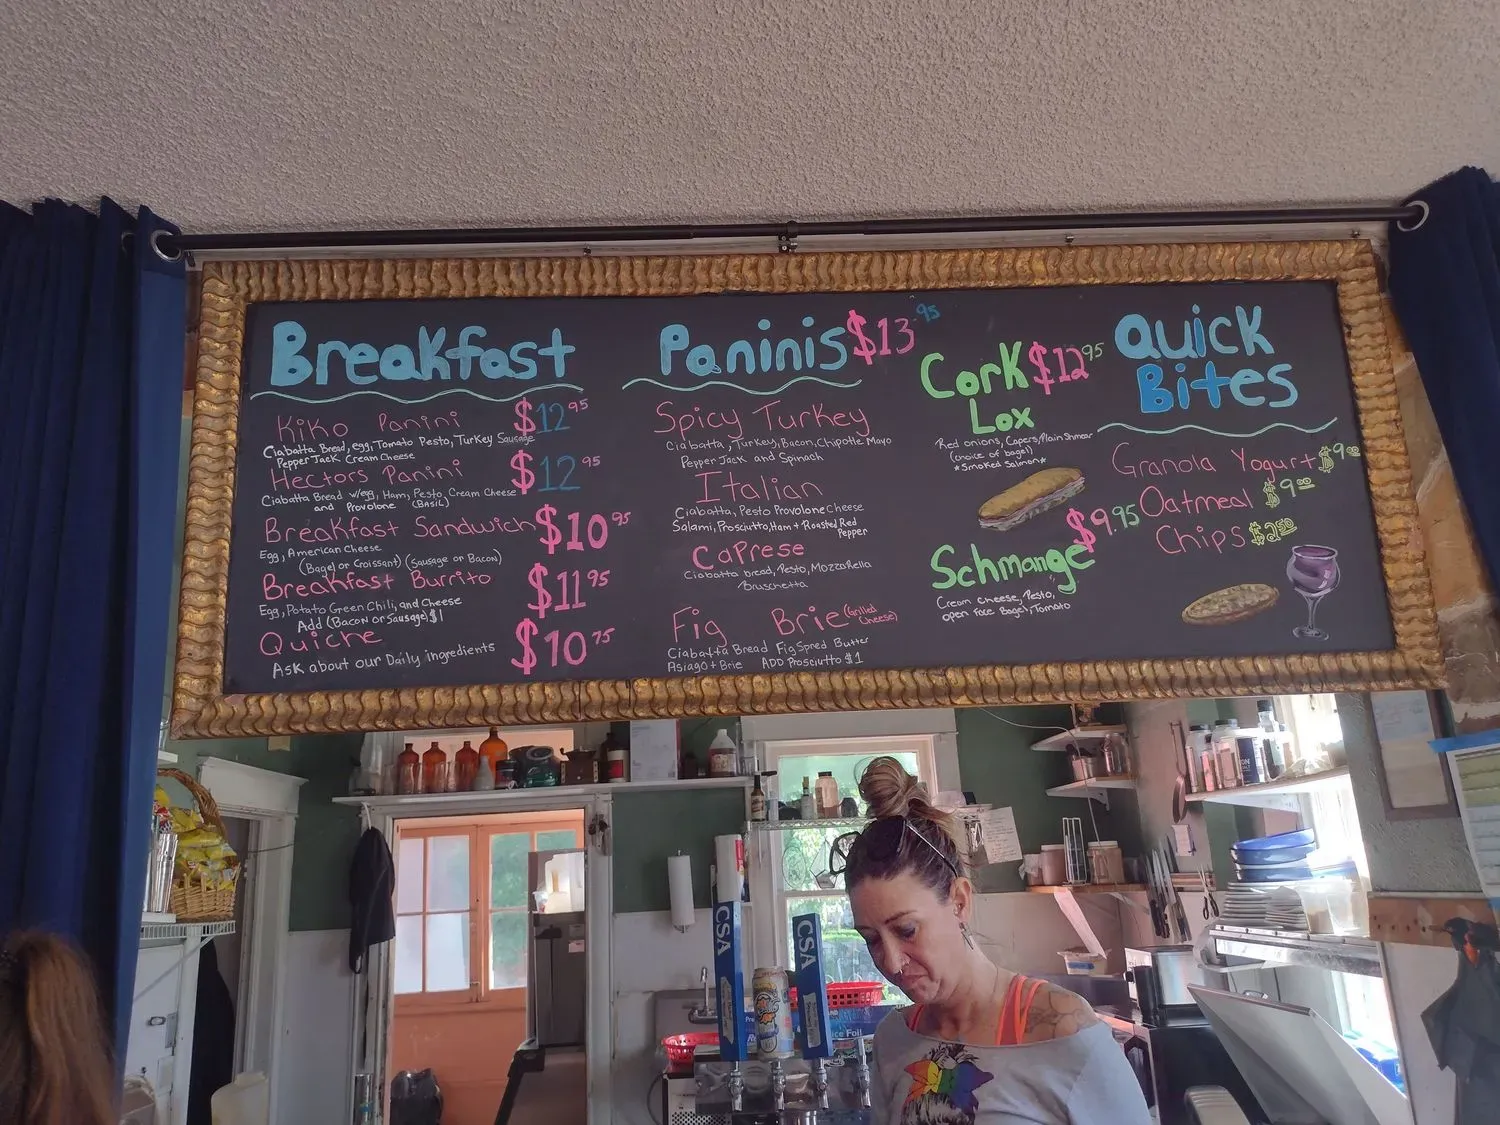 Breakfast
Kiko Panini $12.95
Ciabatta Bread, egg, Tomato Pesto, Turkey Sausage
Pepper Jack Cream Cheese
Hectors Panini $12.95
Ciabatta Bread w/egg, Ham, Pesto, Cream Cheese
and Provolone (BASIL)
Breakfast Sandwich $10.95
Egg, American Cheese
(Bagel or Croissant) (Sausage or Bacon)
Breakfast Burrito $11.95
Egg, Potato Green Chili, and Cheese
Add (Bacon or Sausage) $1
Quiche $10.75
Ask about our Daily ingredients
Paninis $13.95
Spicy Turkey
Ciabatta, Turkey, Bacon, Chipotle Mayo
Pepper Jack and Spinach
Italian
Ciabatta, Pesto Provolone Cheese
Salami, Prosciutto, Ham + Roasted Red
Pepper
Caprese
Ciabatta bread, Pesto, Mozzarella
Bruschetta
Fig Brie (Grilled
Cheese)
Ciabatta Bread Fig Spred Butter
Asiago + Brie ADD Prosciutto $1
Cork $12.95
Lox
Red onions, Capers, Plain Shmear
(choice of bagel)
*Smoked Salmon*
$9.95
Schmange
Cream cheese, Pesto,
open Face Bagel, Tomato
Quick
Bites
Granola Yogurt $9.00
Oatmeal $9.00
Chips $2.50
CSA
CSA